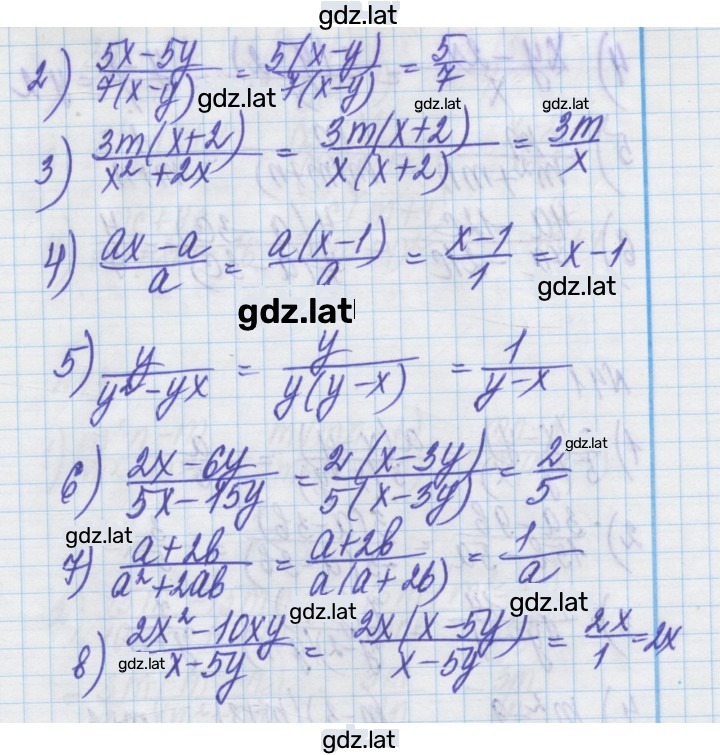 gdz.lat
2) (5x-5y)/(7(x-y)) = (5(x-y))/(7(x-y)) = 5/7
gdz.lat gdz.lat gdz.lat
3) (3m(x+2))/(x²+2x) = (3m(x+2))/(x(x+2)) = 3m/x
4) (ax-a)/a = (a(x-1))/a = (x-1)/1 = x-1
gdz.lat
gdz.lat
5) y/(y²-yx) = y/(y(y-x)) = 1/(y-x)
gdz.lat
6) (2x-6y)/(5x-15y) = (2(x-3y))/(5(x-3y)) = 2/5
gdz.lat
7) (a+2b)/(a²+2ab) = (a+2b)/(a(a+2b)) = 1/a
gdz.lat gdz.lat
8) (2x²-10xy)/(x-5y) = (2x(x-5y))/(x-5y) = 2x/1 = 2x
gdz.lat
gdz.lat